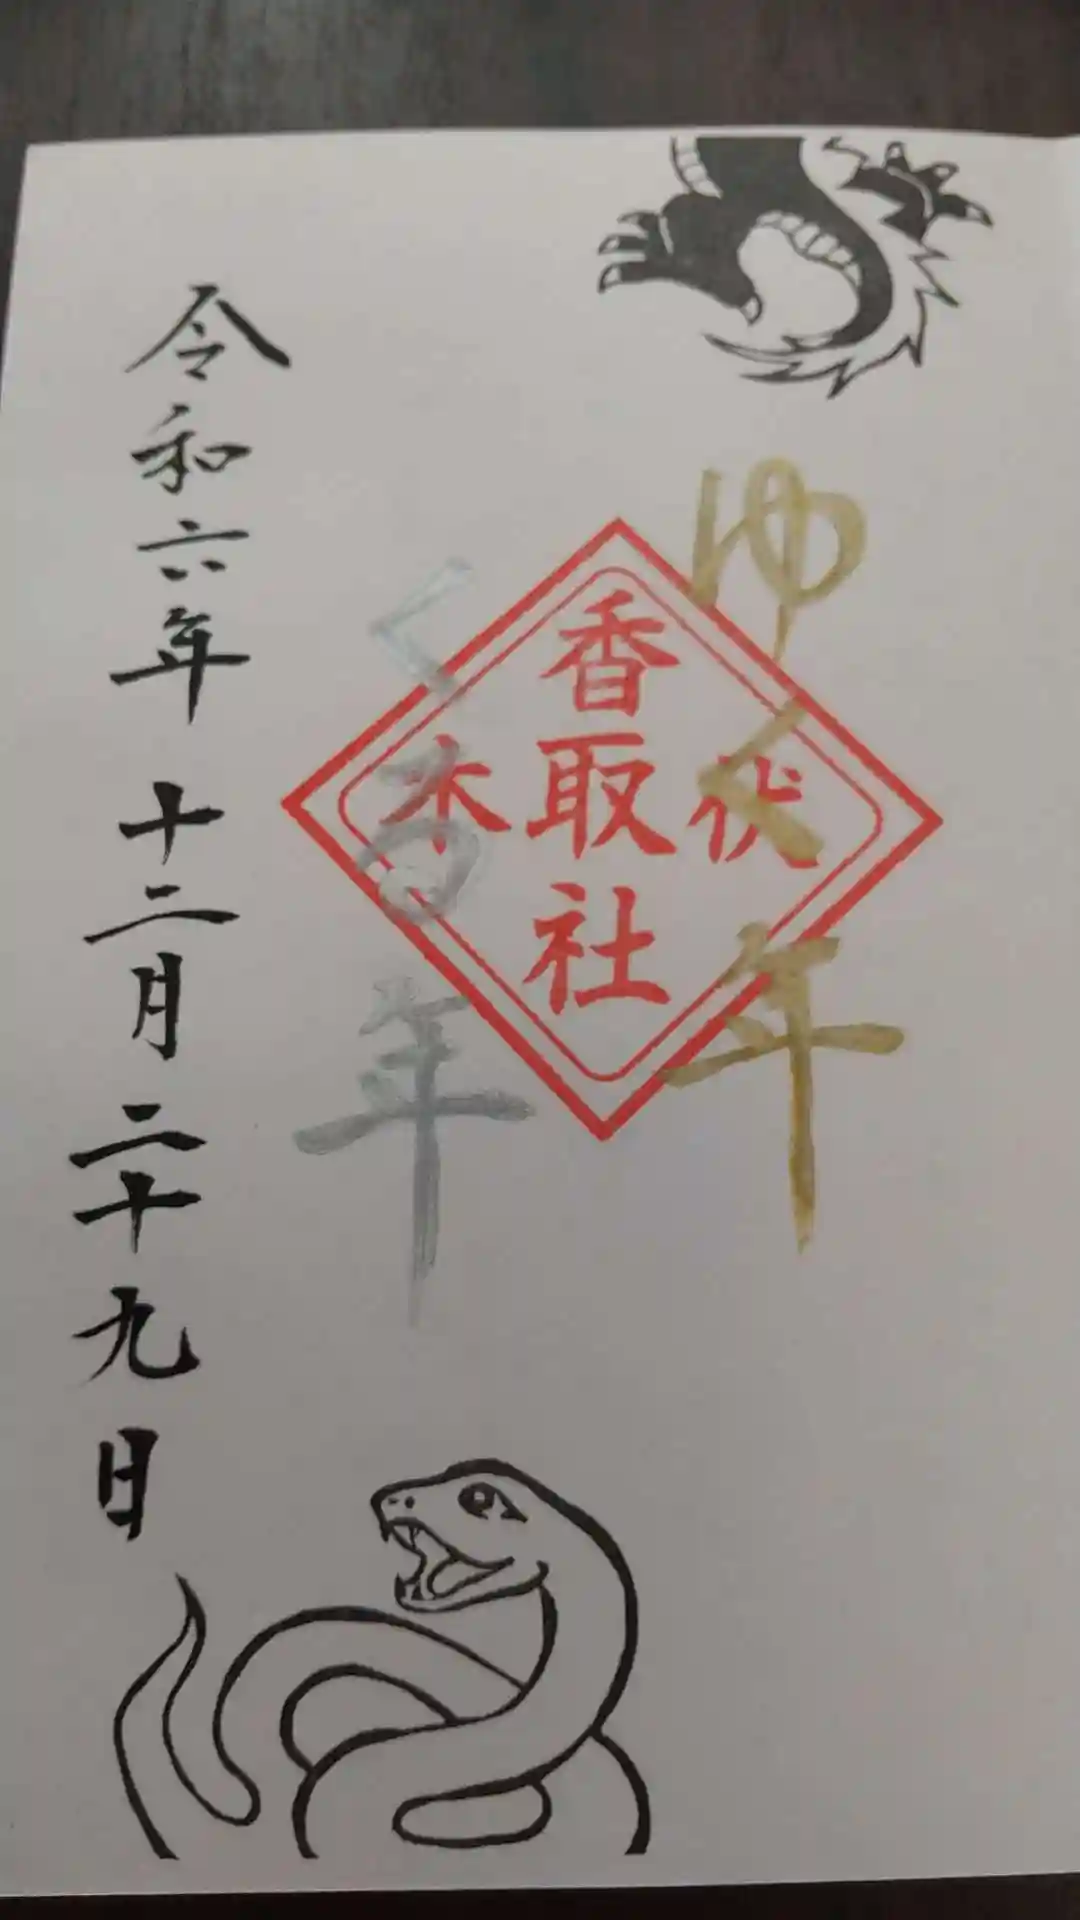 ゆく年
伏木
香取社
くる年
令和六年 十二月二十九日